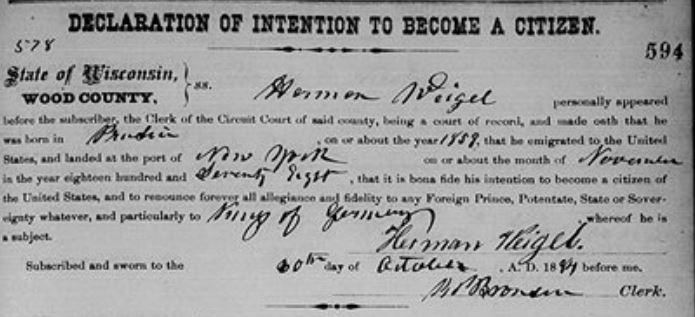 DECLARATION OF INTENTION TO BECOME A CITIZEN.
578
594
State of Wisconsin,
WOOD COUNTY,
ss. Herman Weigel personally appeared
before the subscriber, the Clerk of the Circuit Court of said county, being a court of record, and made oath that he
was born in , on or about the year 1859, that he emigrated to the United
States, and landed at the port of New York on or about the month of November
in the year eighteen hundred and Seventy Eight, that it is bona fide his intention to become a citizen of
the United States, and to renounce forever all allegiance and fidelity to any Foreign Prince, Potentate, State or Sover-
eignty whatever, and particularly to of Germany, whereof he is
a subject.
Herman Weigel.
Subscribed and sworn to the day of October, A. D. 18 before me.
Clerk.